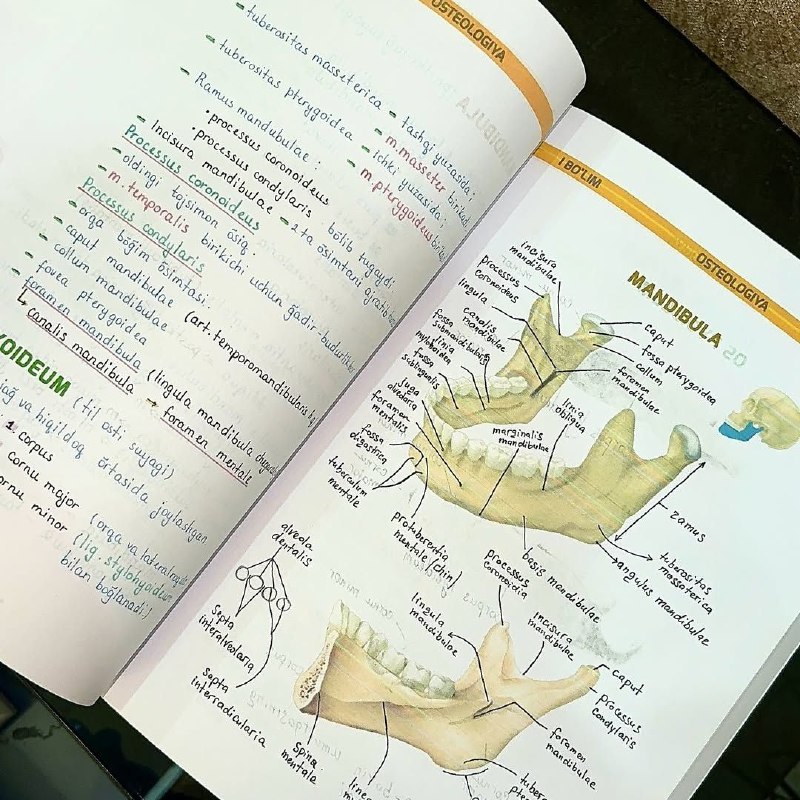 OSTEOLOGIYA
- tuberositas masseterica - tashqi yuzasida;
m. masseter
- tuberositas pterygoidea - ichki yuzasida;
m. pterygoideus
- Ramus mandubulae:
• processus coronoideus
• processus condylaris bo'lib tugaydi
- Incisura mandibulae - 2 ta o'simtani ajratib
Processus coronoideus
- oldingi tojsimon o'siq;
- m. temporalis birikichi uchun g'adir-budurliklar
Processus condylaris
- orqa bo'g'im o'simtasi.
- caput mandibulae (art. temporomandibularis
- collum mandibulae
- fovea pterygoidea
- foramen mandibula (lingula mandibula
↳ canalis mandibula → foramen mentale
OIDEUM (til osti suyagi)
va hiqildoq o'rtasida joylashgan
1 corpus
cornu major (orqa va lateral
cornu minor (lig. stylohyoideum
bilan bog'lanadi)
I BO'LIM
OSTEOLOGIYA
MANDIBULA
incisura
mandibulae
processus
coronoideus
lingula
canalis
mandibulae
fossa
submandibularis
linia
mylohyoidea
fossa
sublingualis
juga
alveolaria
foramen
mentalis
fossa
digastrica
tuberculum
mentale
caput
fossa pterygoidea
collum
foramen
mandibulae
linia
obliqua
marginalis
mandibulae
ramus
tuberositas
massoterica
angulus mandibulae
basis mandibulae
protuberentia
mentale (chin)
alveola
dentalis
septa
interalveolaria
septa
interradicularia
processus
coronoidia
lingula
mandibulae
Incisura
mandibulae
caput
processus
condylaris
foramen
mandibulae
spina
mentale